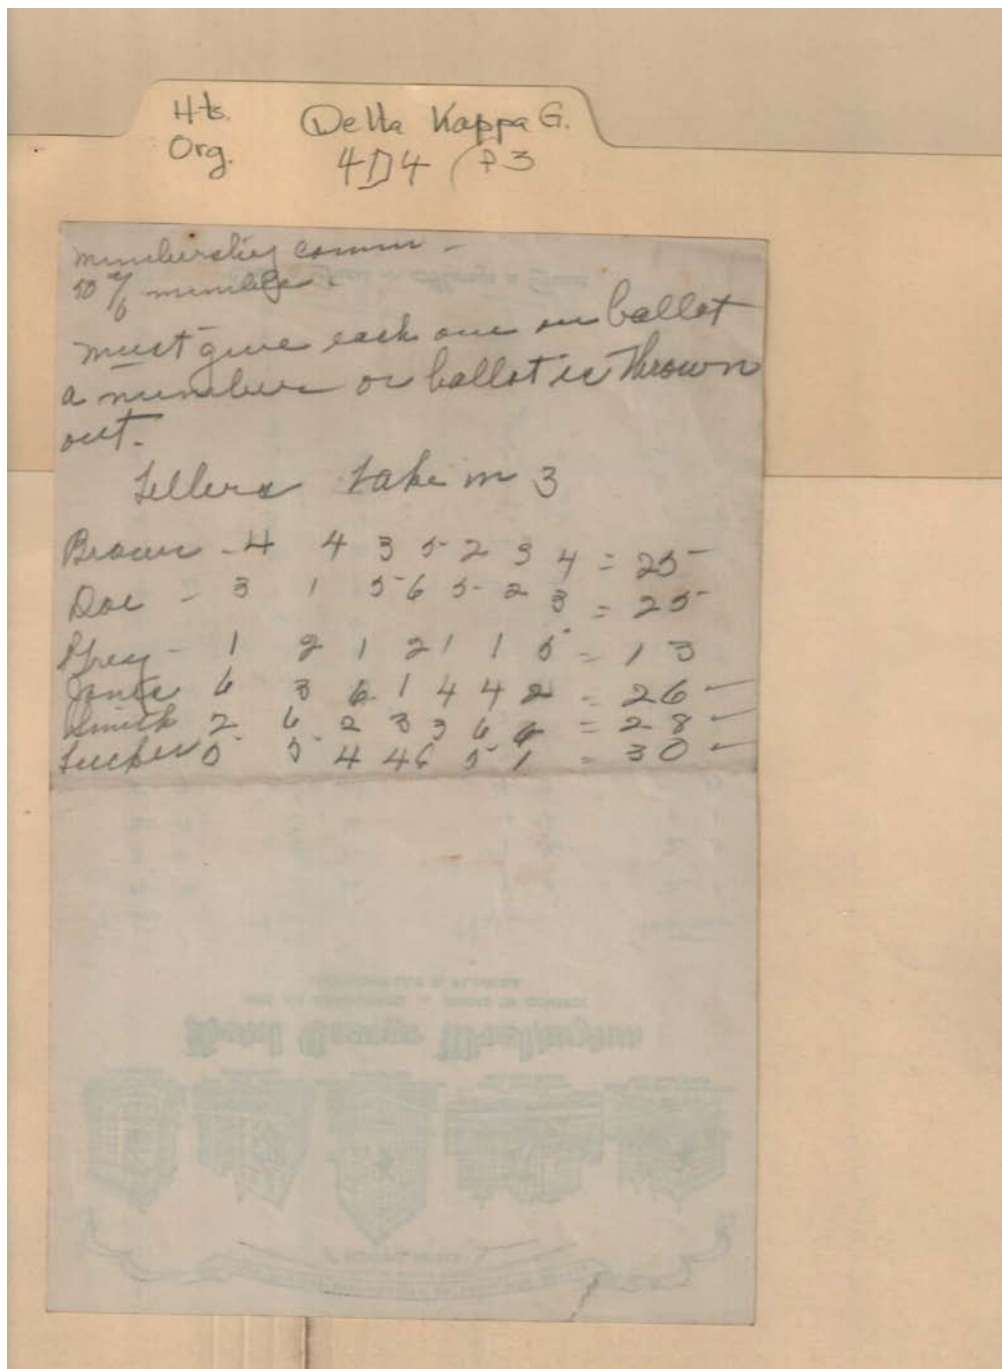 Hts. Delta Kappa G.
Org. 4D4 (P3
membership comm -
50 % members.
must give each one on ballot
a number or ballot is thrown
out.
Tellers take in 3
Brown - 4 4 3 5 2 3 4 = 25
Doe - 3 1 5 6 5 2 3 = 25
Grey - 1 2 1 2 1 1 5 = 13
Jones 6 3 6 1 4 4 2 = 26 -
Smith 2 6 2 3 3 6 6 = 28 -
Tucker 5 5 4 4 6 5 1 = 30 -
Hotel George Washington